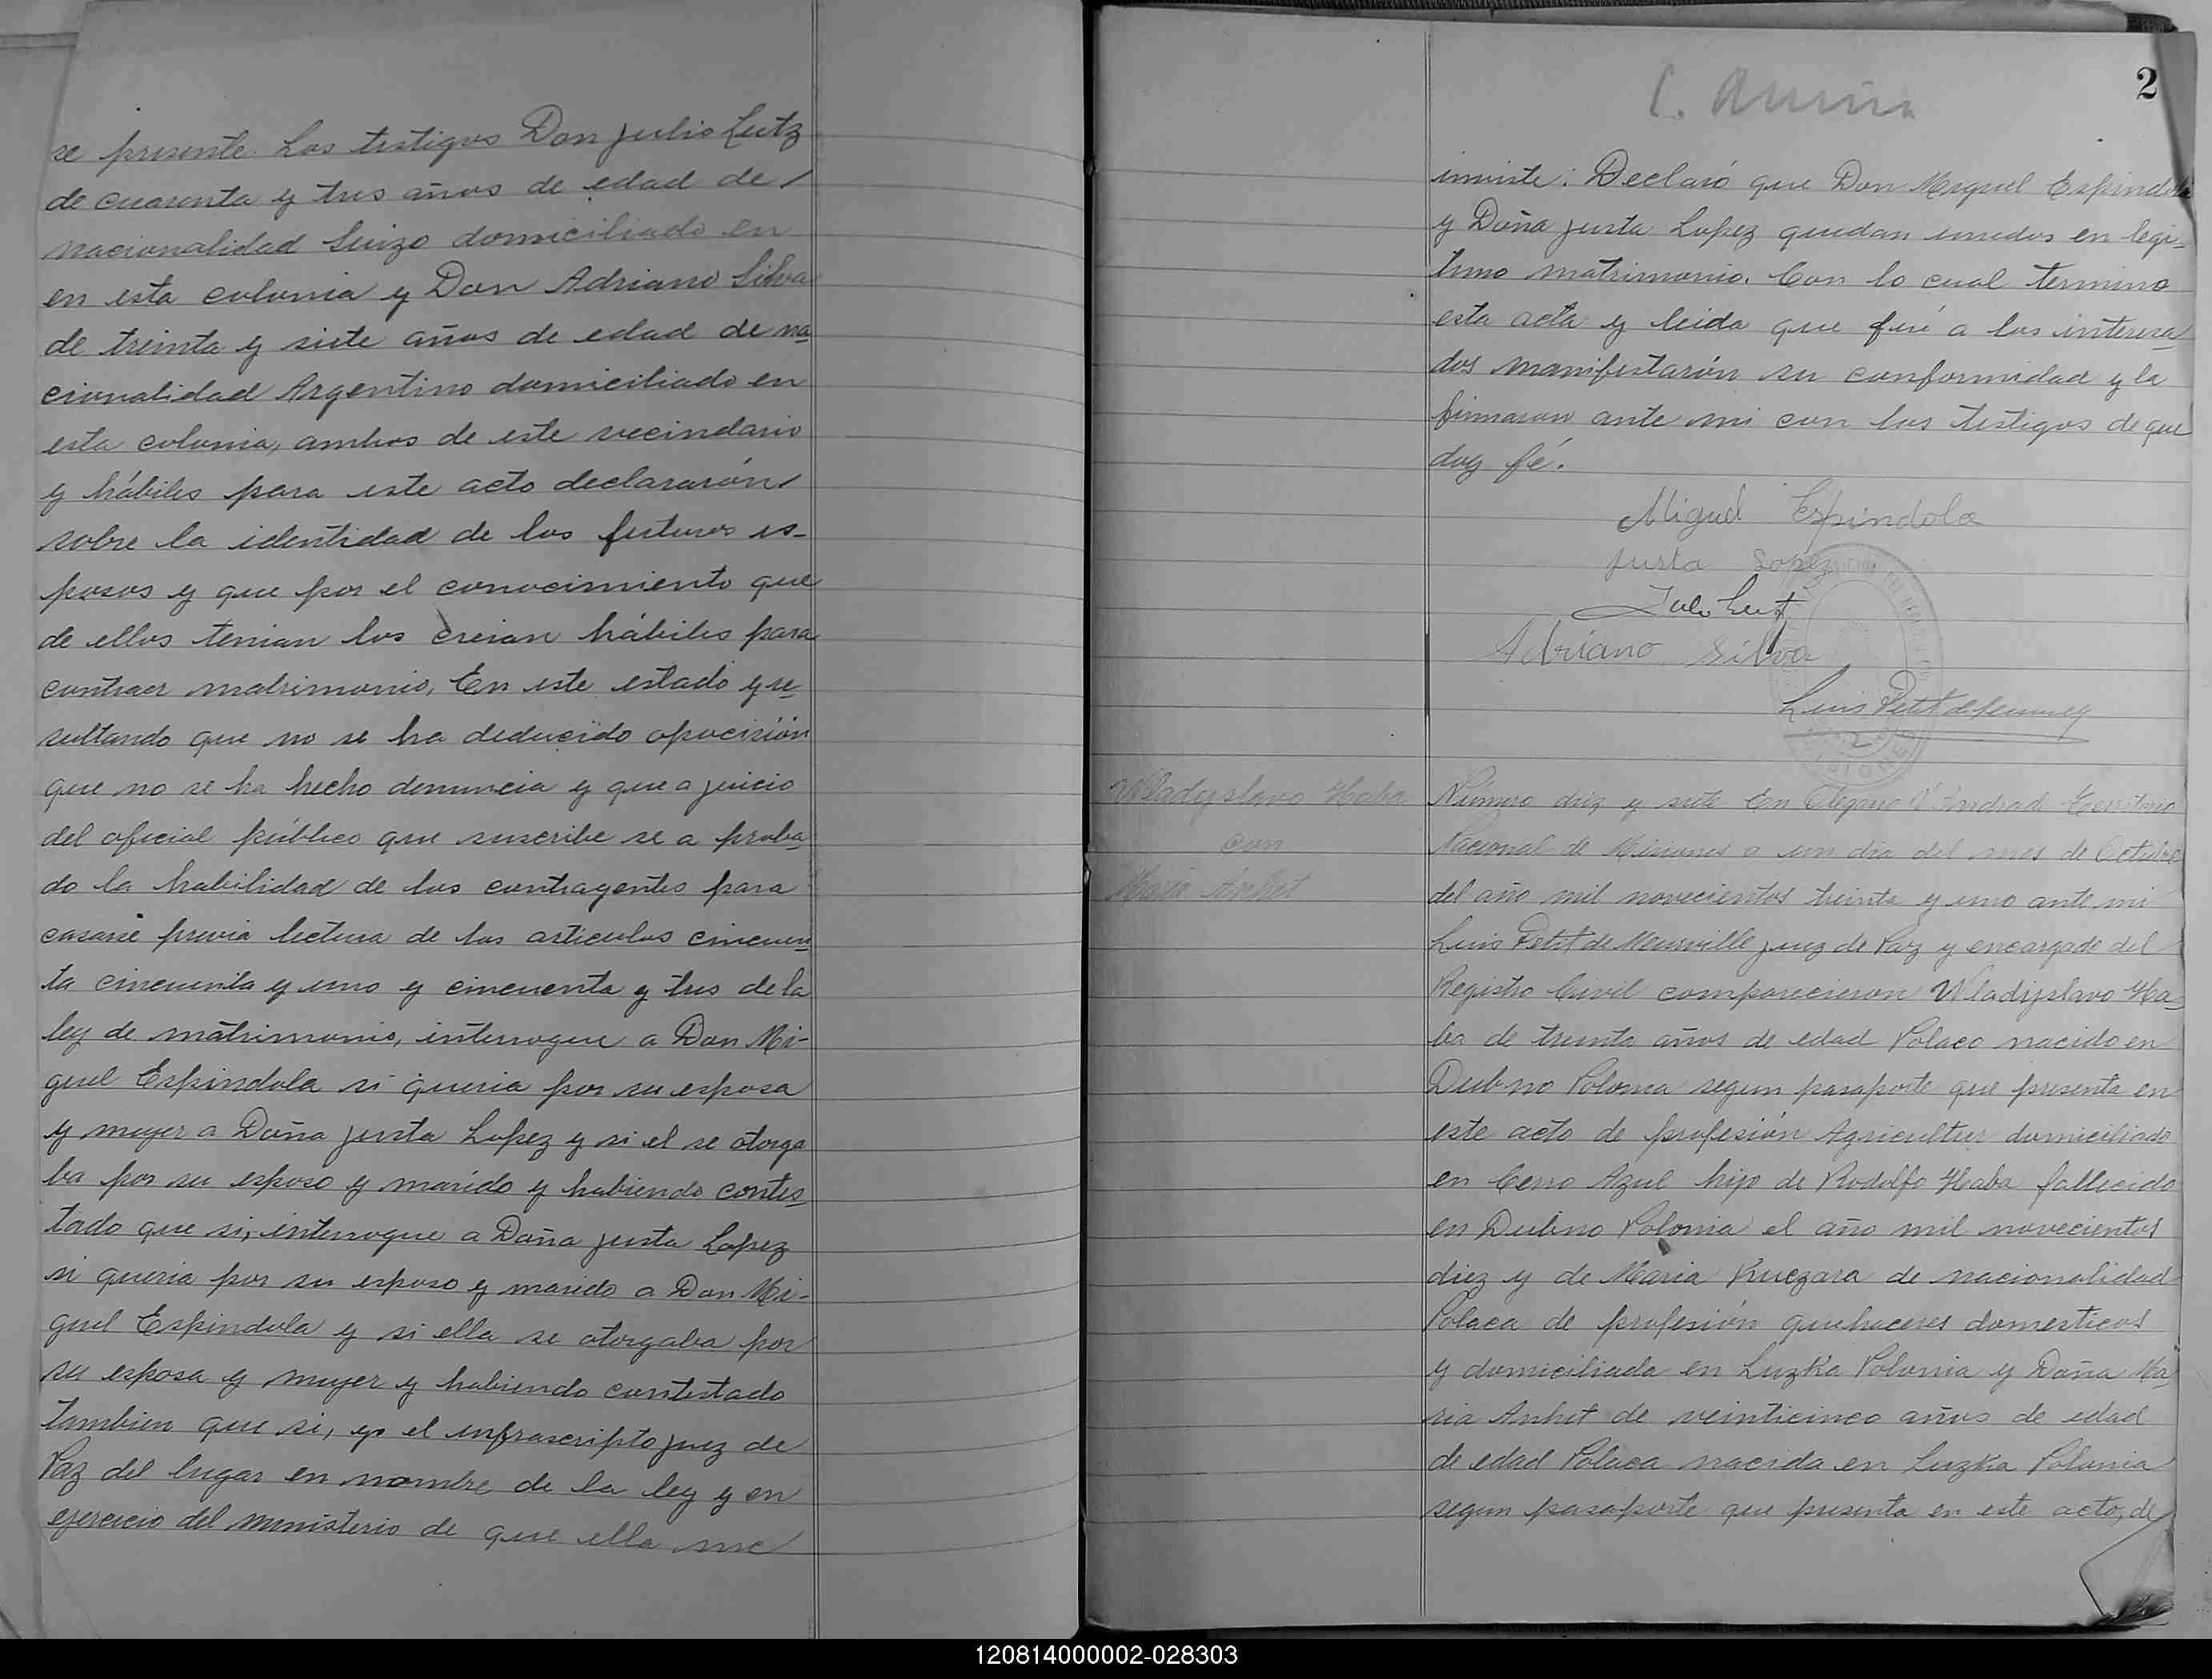 se presente. Los testigos Don Julio Lutz
de cuarenta y tres años de edad de
nacionalidad Suizo domiciliado en
en esta colonia y Don Adriano Silva
de treinta y siete años de edad de na
cionalidad Argentino domiciliado en
esta colonia, ambos de este vecindario
y hábiles para este acto declararón
sobre la identidad de los futuros es-
posos y que por el conocimiento que
de ellos tenian los creian hábiles para
contraer matrimonio. En este estado y re
sultando que no se ha deducido oposición
que no se ha hecho denuncia y que a juicio
del oficial público que suscribe se a proba
do la habilidad de los contragentes para
casarse previa lectura de los articulos cincuen
ta cincuenta y uno y cincuenta y tres de la
ley de matrimonio, interrogue a Don Mi-
guel Espindola si queria por su esposa
y mujer a Doña Justa Lopez y si el se otorga
ba por su esposo y marido y habiendo contes
tado que si, interrogue a Doña Justa Lopez
si queria por su esposo y marido a Don Mi-
guel Espindola y si ella se otorgaba por
su esposa y mujer y habiendo contestado
tambien que si, yo el infrascripto juez de
Paz del lugar en nombre de la ley y en
ejercicio del ministerio de que ella me
2
inviste: Declaró que Don Miguel Espindola
y Doña Justa Lopez quedan unidos en legi-
timo matrimonio. Con lo cual termino
esta acta y leida que fué a los interesa
dos manifestarón su conformidad y la
firmaron ante mi con los testigos de que
doy fé.
Miguel Espindola
Justa Lopez
Adriano Silva
Luis Petit de
Wladyslavo Haba
con
Maria Anhet
Número diez y siete En Olegario V. Andrade Territorio
Nacional de Misiones a un dia del mes de Octubre
del año mil novecientos treinta y uno ante mi
Luis Petit de Meurville juez de Paz y encargado del
Registro Civil comparecieron Wladyslavo Ha
ba de treinta años de edad Polaco nacido en
Dubno Polonia segun pasaporte que presenta en
este acto de profesión Agricultur domiciliado
en Cerro Azul hijo de Rodolfo Haba fallecido
en Dubno Polonia el año mil novecientos
diez y de Maria Kruczara de nacionalidad
Polaca de profesión quehaceres domesticos
y domiciliada en Luzka Polonia y Doña Ma
ria Anhet de veinticinco años de edad
de edad Polaca nacida en Luzka Polonia
segun pasaporte que presenta en este acto, de
120814000002-028303